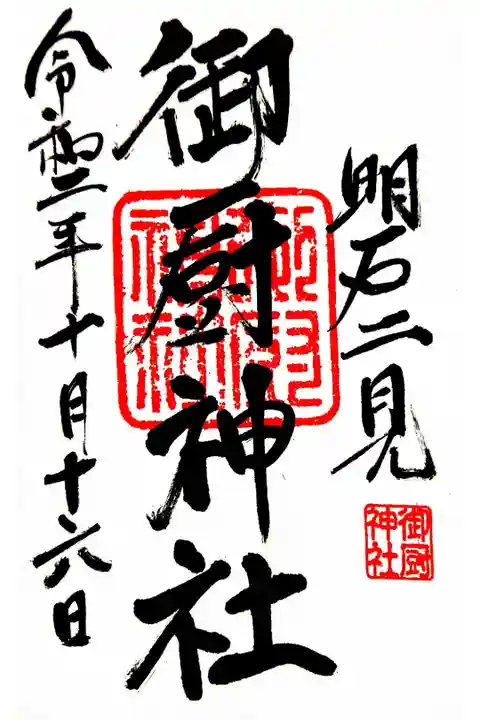 明石二見
御厨神社
御厨神社
令和二年十月十六日